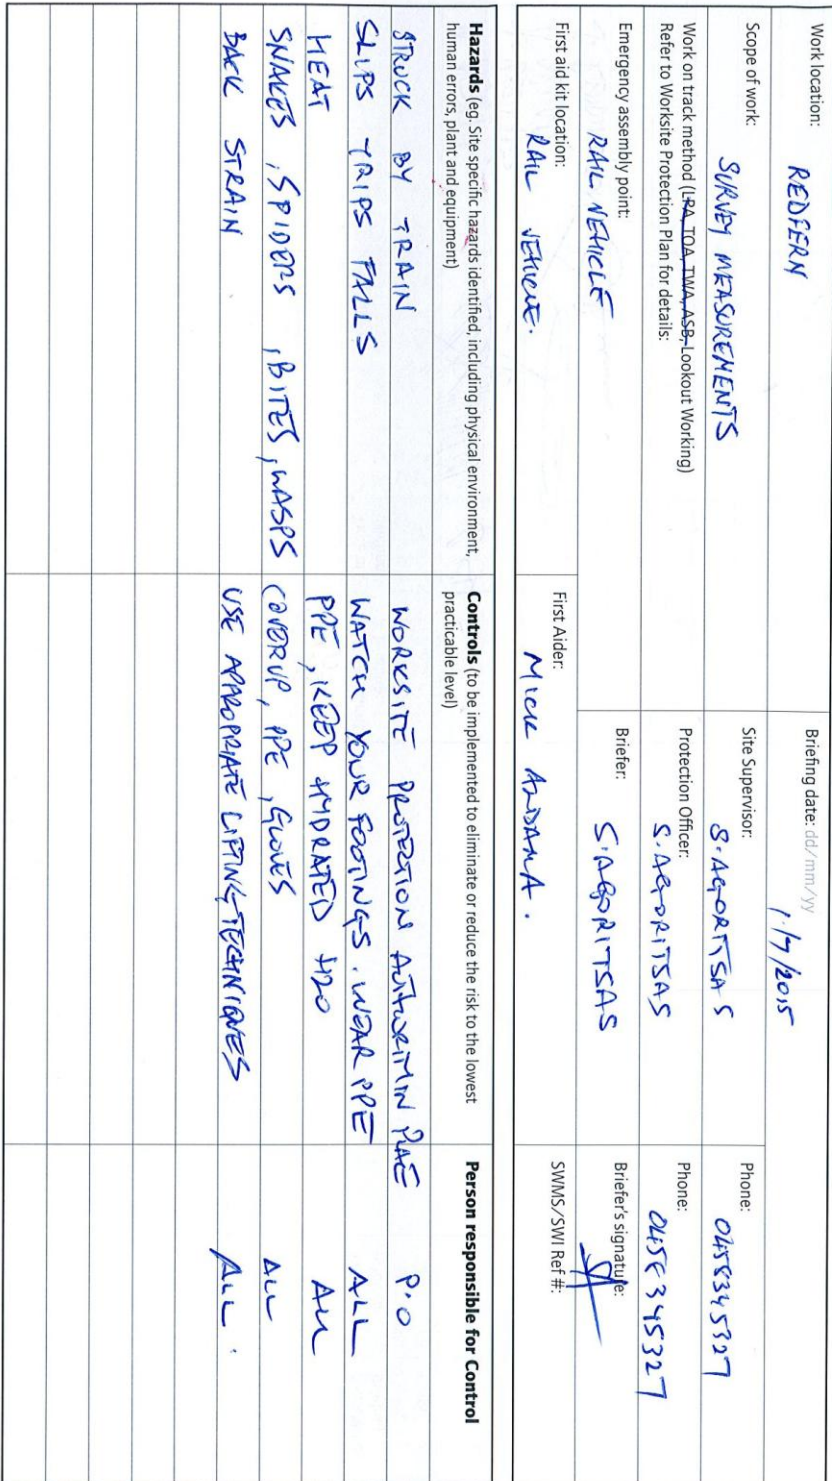 Work location:
REDFERN
Briefing date: dd/mm/yy
1/7/2015
Scope of work:
SURVEY MEASUREMENTS
Site Supervisor:
S. AGORITSAS
Phone:
0458345327
Work on track method (LRA, TOA, TWA, ASB, Lookout Working)
Refer to Worksite Protection Plan for details:
Protection Officer:
S. AGORITSAS
Phone:
0458345327
Emergency assembly point:
RAIL VEHICLE
Briefer:
S. AGORITSAS
Briefer's signature:
First aid kit location:
RAIL VEHICLE.
First Aider:
MICK
SWMS/SWI Ref #:
Hazards (eg. Site specific hazards identified, including physical environment,
human errors, plant and equipment)
Controls (to be implemented to eliminate or reduce the risk to the lowest
practicable level)
Person responsible for Control
STRUCK BY TRAIN
WORKSITE PROTECTION
P.O
SLIPS TRIPS FALLS
WATCH YOUR FOOTINGS. WEAR PPE
ALL
HEAT
PPE, KEEP HYDRATED H2O
ALL
SNAKES, SPIDERS, BITES, WASPS
COVERUP, PPE, GLOVES
ALL
BACK STRAIN
USE APPROPRIATE LIFTING TECHNIQUES
ALL.